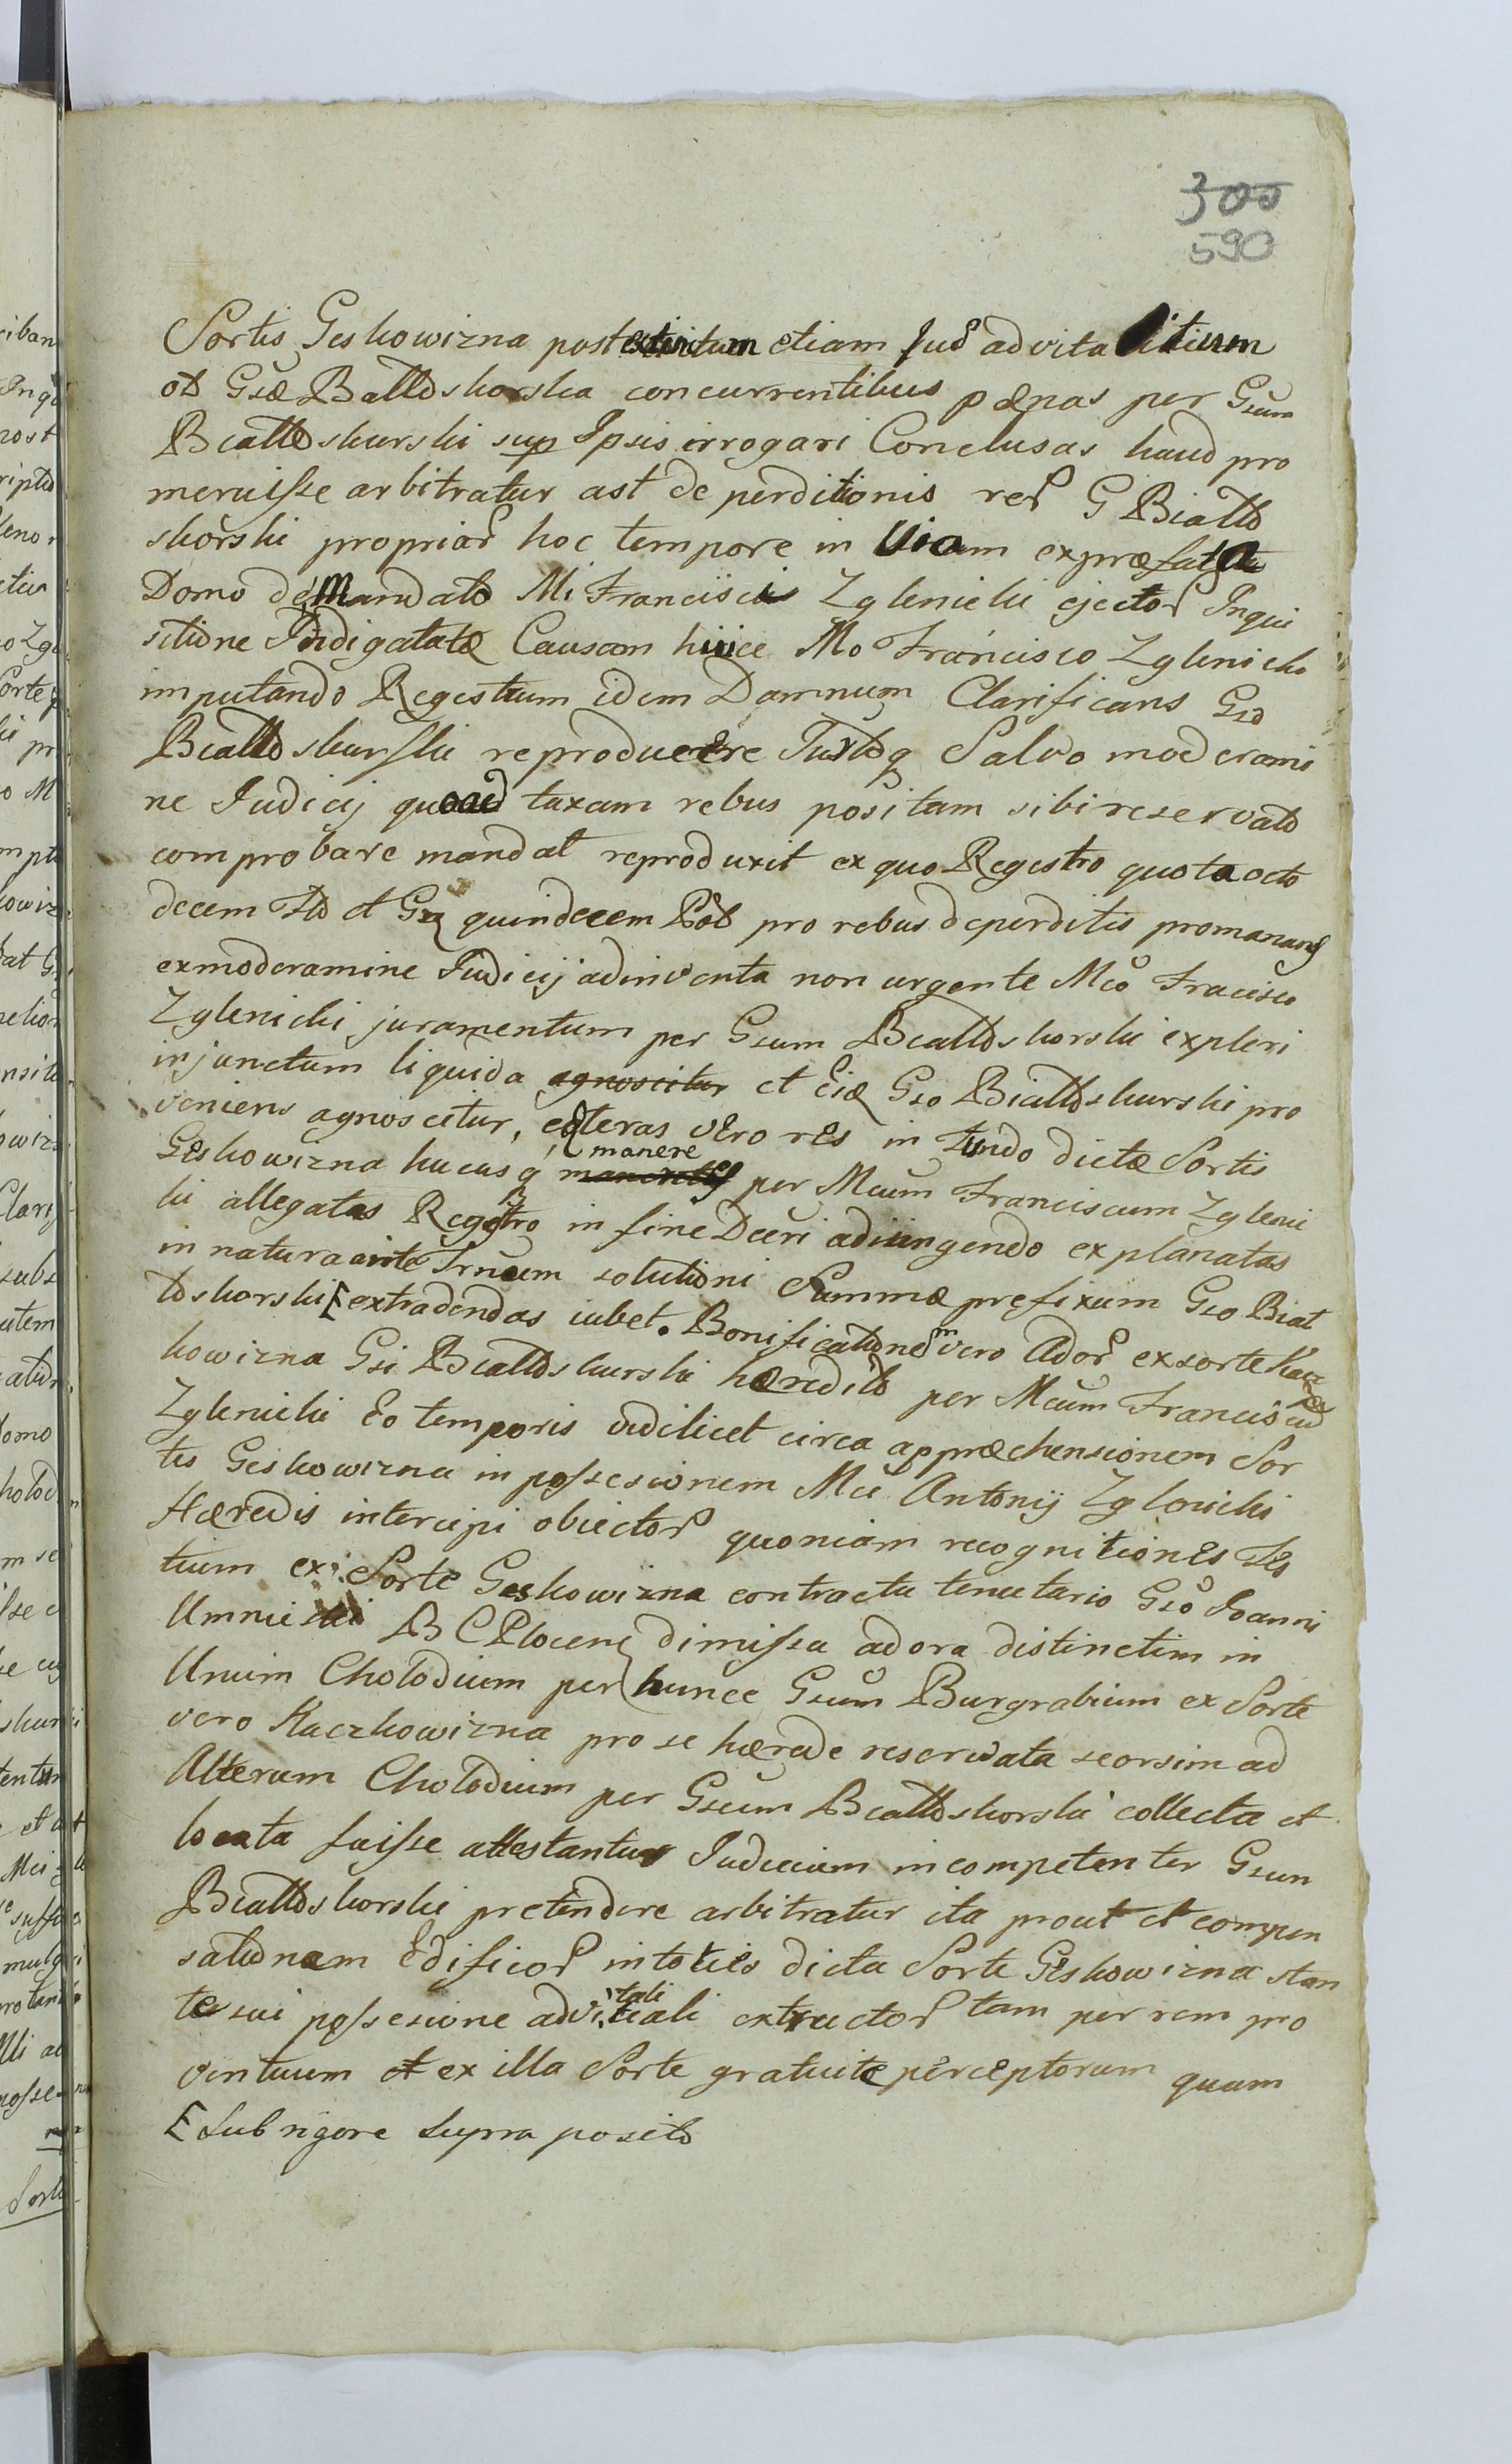 300
590
Sortis Geskowizna post extinctum etiam Jus advitalitium
ot Gsæ Białłoskorska concurrentibus pænas per Gsum
Białłoskurski sup Ipsis irrogari Conclusas haud pro
meruisse arbitratur ast de perditionis rer G Białło
skorski propriar hoc tempore in Viam ex præfata
Domo de Mandato Mi Franciscis Zglenicki ejector Inqui
sitione Indigatatæ Causam hiice Mo Francisco Zglenicko
imputando Regestrum idem Damnum Clarificans Gso
Białłoskurski reproducere Juxtoq Salvo moderami
ne Judicij quoad taxam rebus positam sibi reservato
comprobare mandat reproduxit ex quo Regestro quota octo
decem Flo et Grz quindecem Pol pro rebus deperditis promanans
ex moderamine Judicij adinventa non urgente Mco Fracisco
Zglenicki juramentum per Gsum Białłoskorski expleri
injunctum liquida agnoscitur et Eiq Gso Białłoskurski pro
veniens agnoscitur, cæteras vero res in Fundo dictæ Sortis
manere
Geskowizna hucusq per Mcum Franciscum Zgleni
ki allegatas Regestro in fine Dcri adiungendo explanatas
in natura ante Trnum solutioni Summæ prefixum Gso Biał
łoskorski [ extradendas iubet. Bonificationem vero Ador ex sorte Kacz
kowizna Gsi Białłoskurski hæredito per Mcum Franciscum
Zglenicki Eo temporis videlicet circa appræhensionem Sor
tis Geskowizna in possesionem Mci Antonij Zglenicki
Hæredis intercipi obiector quoniam recognitiones Tes
tium ex Sorte Geskowizna contractu tenutario Gso Joanni
Umnieski B C Plocens dimissa adora distinctim in
Unum Cholodium per hunce Gsum Burgrabium ex Sorte
vero Kaczkowizna pro se hærede reservata seorsim ad
Alterum Cholodium per Gsum Białłoskorski collecta et
locata fuisse attestantur Judicium incompetenter Gsum
Białłoskorski pretendere arbitratur ita prout et compen
sationem Edificior in toties dicta Sorte Geskowizna stan
tali
te sui possesione advitiali extructor tam per rem pro
ventuum et ex illa Sorte gratuite perceptorum quam
[ Sub rigore supra posito